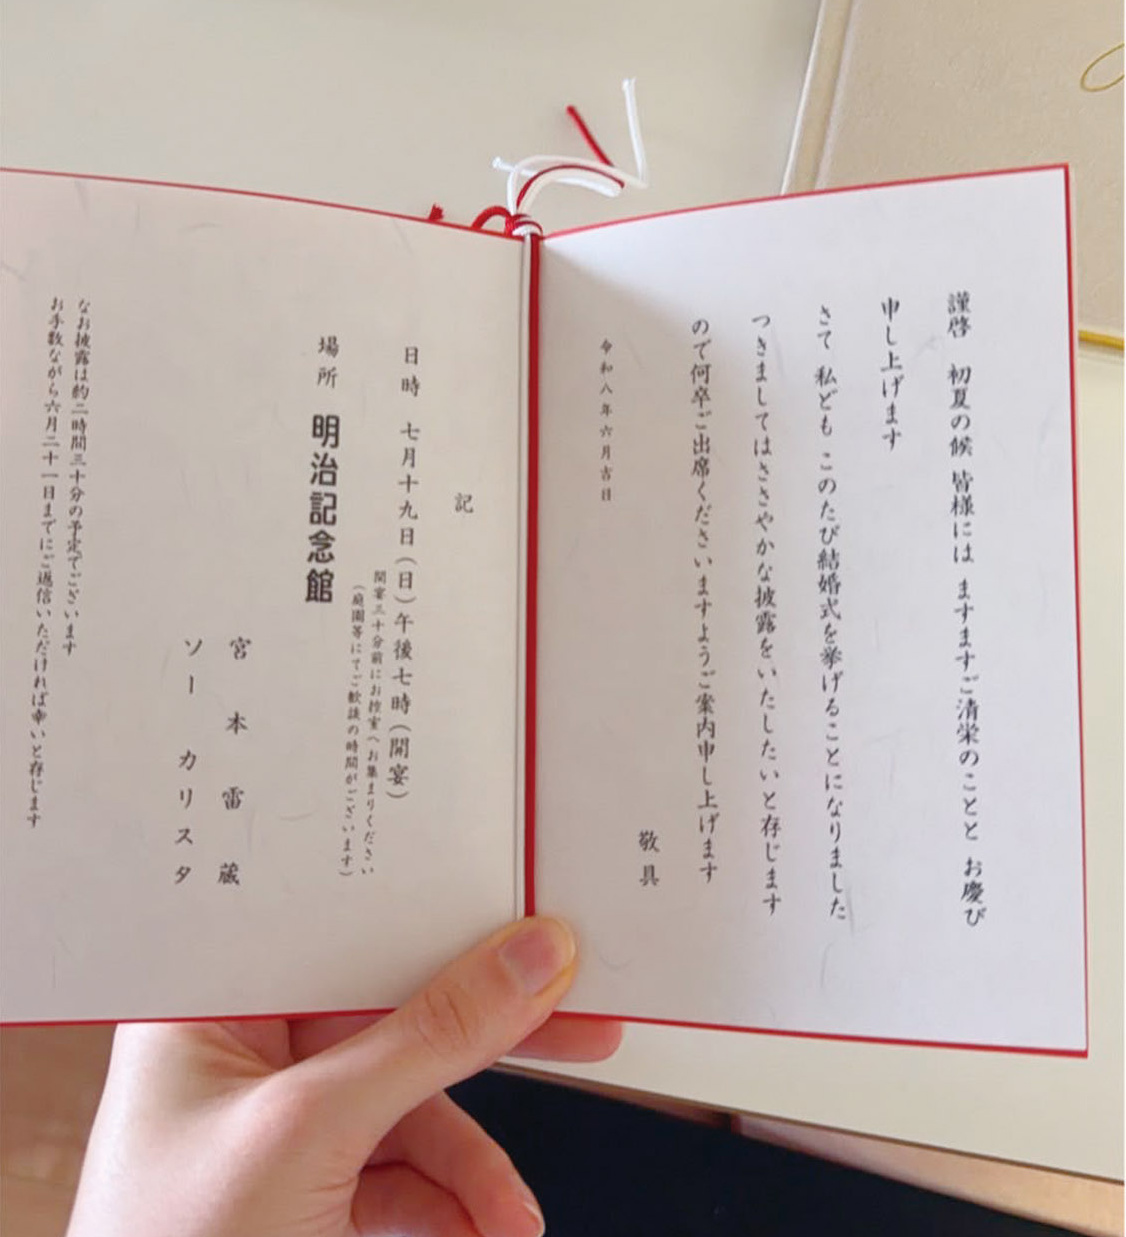 謹啓 初夏の候 皆様には ますますご清栄のことと お慶び
申し上げます
さて 私ども このたび結婚式を挙げることになりました
つきましてはささやかな披露をいたしたいと存じます
ので何卒ご出席くださいますようご案内申し上げます
敬具
令和八年六月吉日
記
日時 七月十九日(日)午後七時(開宴)
開宴三十分前にお控室へお集まりください
(庭園等にてご歓談の時間がございます)
場所 明治記念館
宮本雷蔵
ソー カリスタ
なお披露は約二時間三十分の予定でございます
お手数ながら六月二十一日までにご返信いただければ幸いと存じます